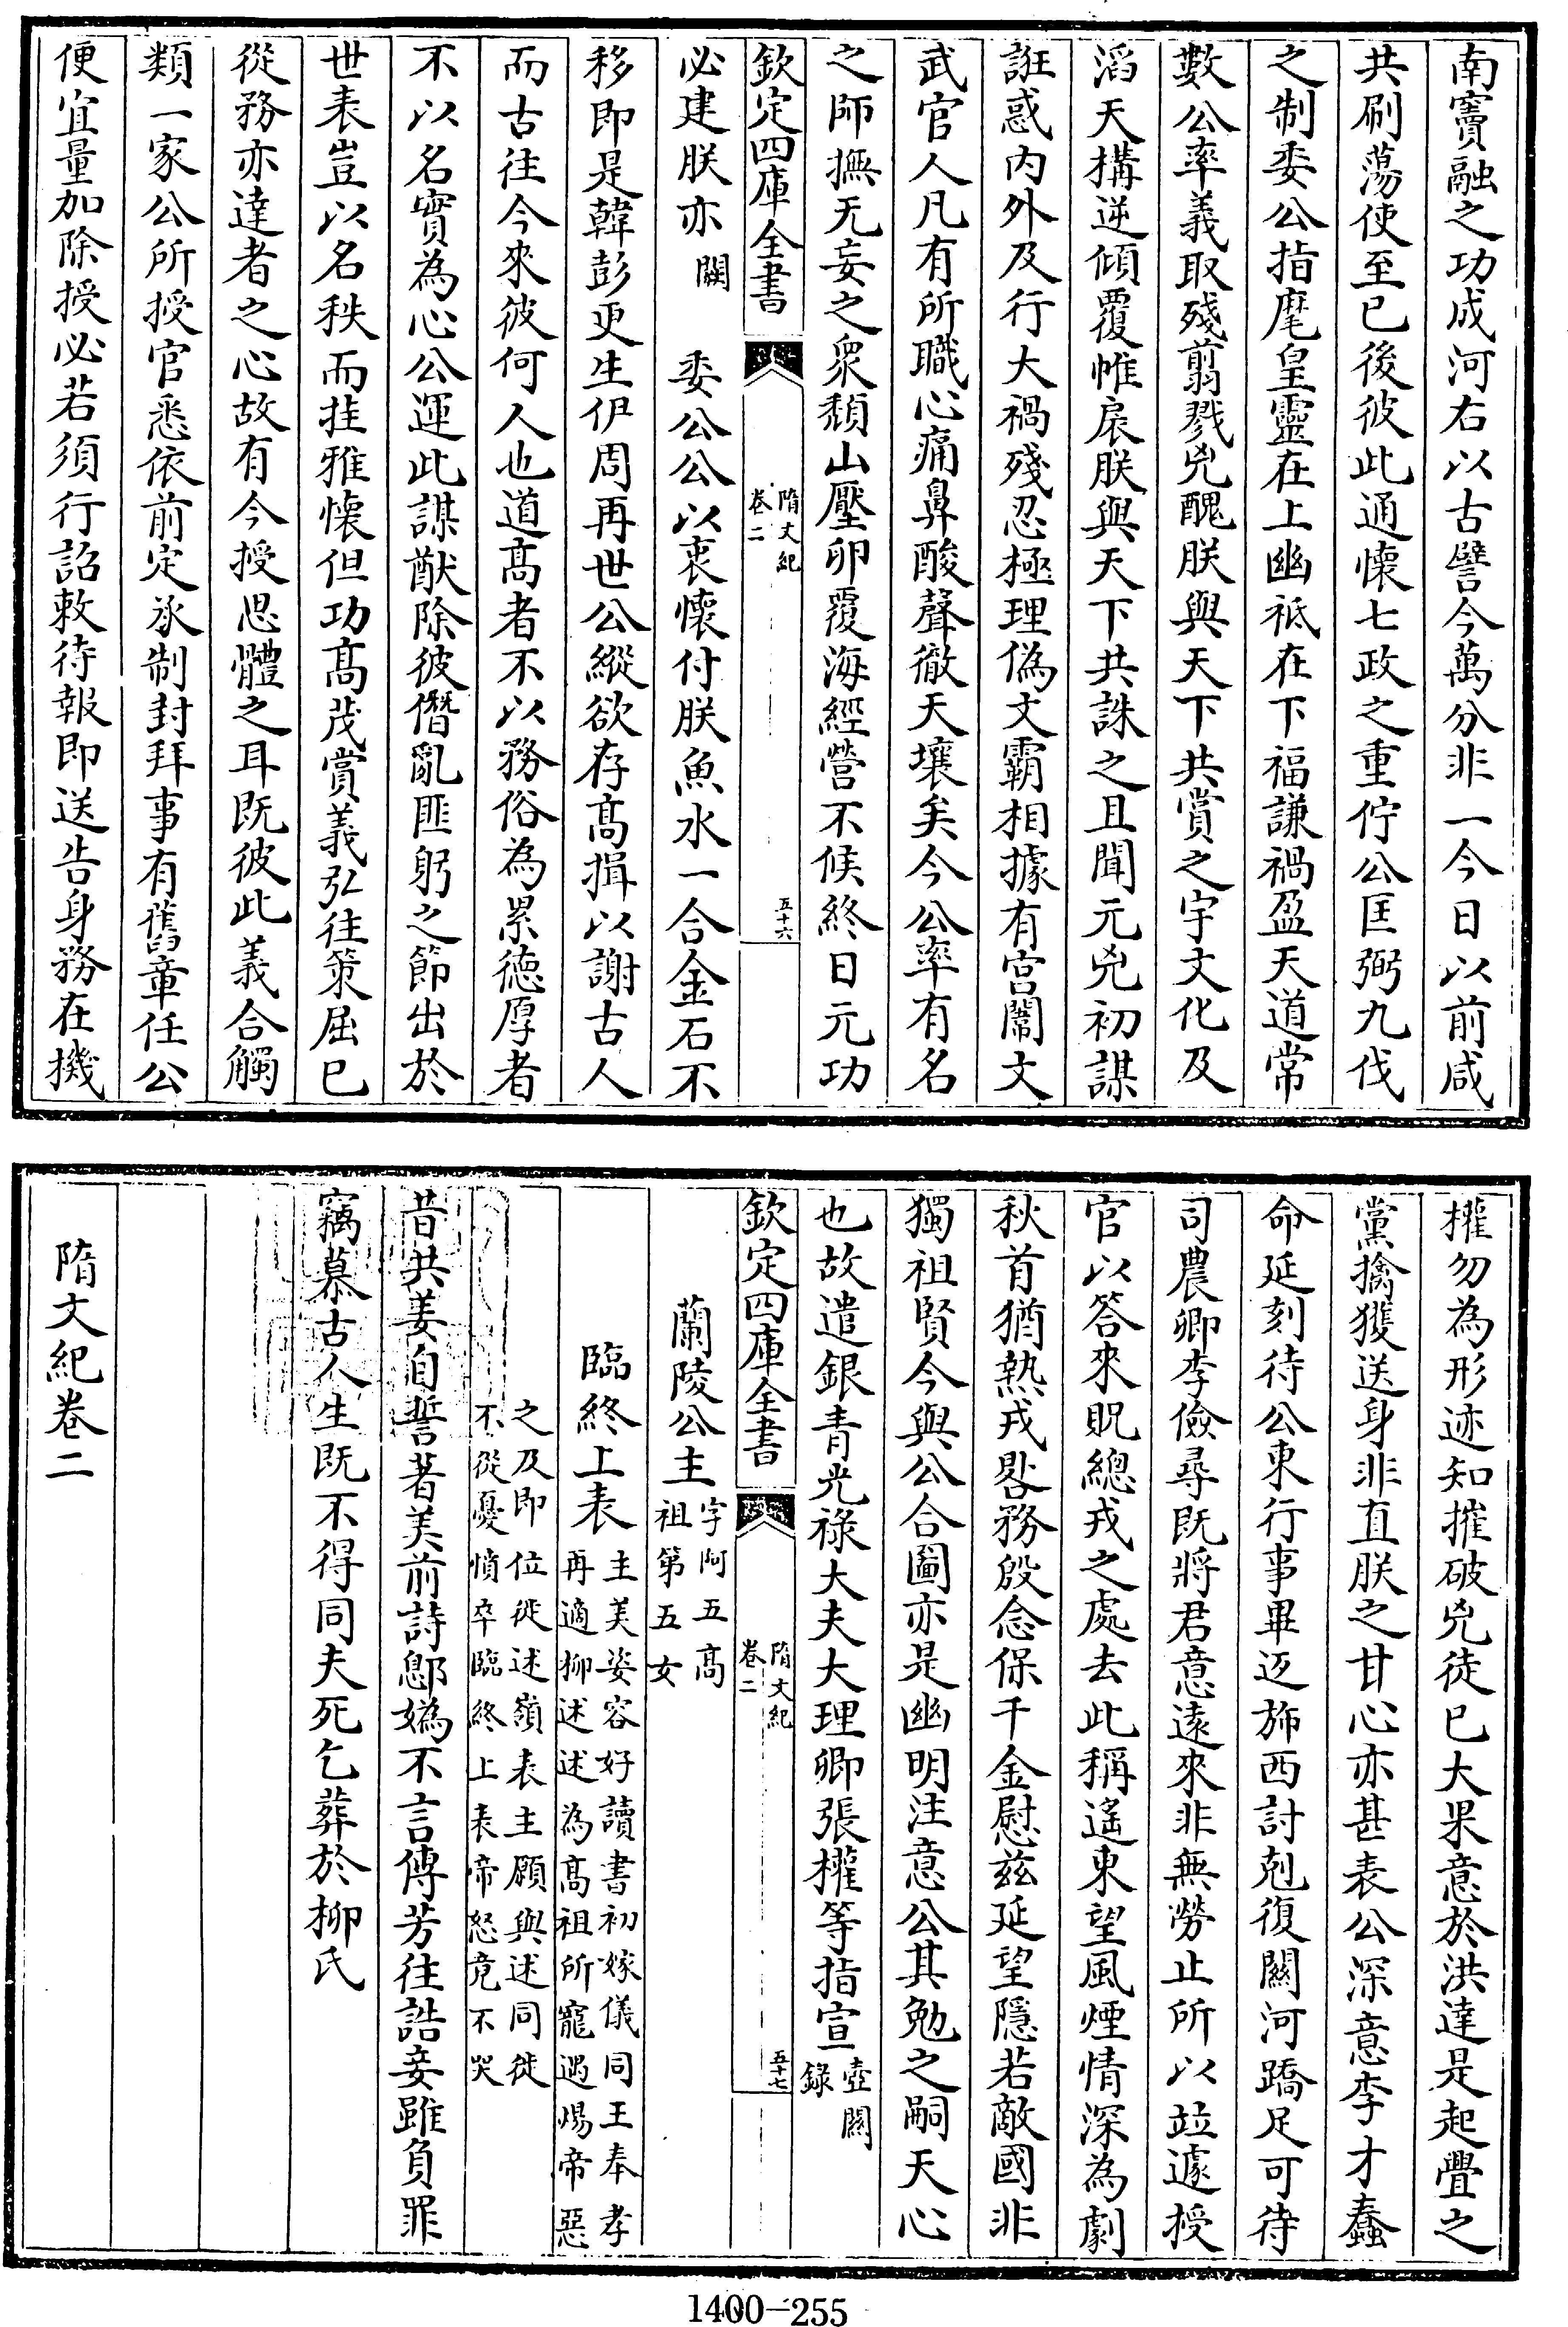 南竇融之功成河右以古譬今萬分非一今日以前咸
共刷蕩使至已後彼此通懷七政之重佇公匡弼九伐
之制委公指麾皇靈在上幽祇在下福謙禍盈天道常
數公率義取殘翦戮兇醜朕與天下共賞之宇文化及
滔天搆逆傾覆帷扆朕與天下共誅之且聞元兇初謀
誑惑内外及行大禍殘忍極理偽文霸相據有宫闈文
武官人凡有所職心痛鼻酸聲徹天壤矣今公率有名
之師撫无妄之衆頽山壓卵覆海經營不候終日元功
欽定四庫全書
隋文紀
卷二
五十六
必建朕亦闕　委公公以衷懷付朕魚水一合金石不
移即是韓彭更生伊周再世公縱欲存髙揖以謝古人
而古往今來彼何人也道髙者不以務俗為累徳厚者
不以名實為心公運此謀猷除彼僭亂匪躬之節出於
世表豈以名秩而挂雅懷但功髙茂賞義弘往策屈已
從務亦達者之心故有今授思體之耳既彼此義合觸
類一家公所授官悉依前定承制封拜事有舊章任公
便宜量加除授必若須行詔敕待報即送告身務在機
權勿為形迹知摧破兇徒已大果意於洪達是起舋之
黨擒獲送身非直朕之甘心亦甚表公深意李才蠢
命延刻待公東行事畢迈斾西討剋復關河蹻足可待
司農卿李儉尋既將君意逺來非無勞止所以竝遽授
官以答來貺總戎之處去此稱遙東望風煙情深為劇
秋首猶熱戎畧務殷念保千金慰兹延望隱若敵國非
獨祖賢今與公合圖亦是幽明注意公其勉之嗣天心
也故遣銀青光祿大夫大理卿張權等指宣壺關録
欽定四庫全書
隋文紀
卷二
五十七
蘭陵公主字阿五髙祖第五女
臨終上表主美姿容好讀書初嫁儀同王奉孝再適柳述述為髙祖所寵遇煬帝惡
之及即位徙述嶺表主願與述同徙不從憂憤卒臨終上表帝怒竟不哭
昔共姜自誓著美前詩鄎媯不言傳芳往誥妾雖負罪
竊慕古人生既不得同夫死乞葬於柳氏
隋文紀卷二
1400-255